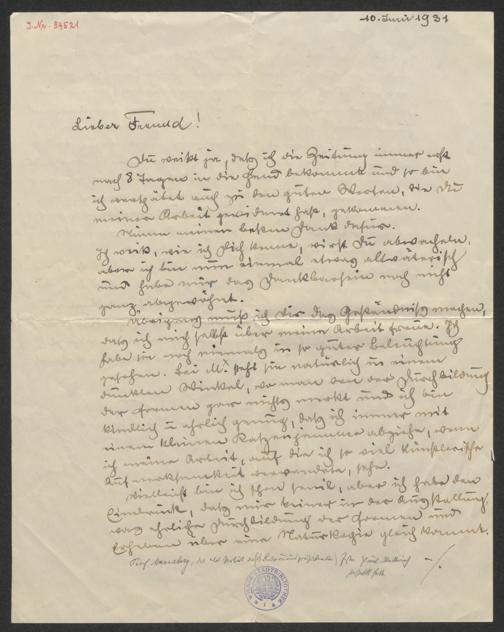 J. Nr. 94521
10. Juni 1931
Lieber Freund!
Du weißt ja, daß ich die Zeitung immer erst
nach 8 Tagen in die Hand bekomme und so bin
ich verspätet auch zu den guten Worten, die Du
meiner Arbeit gewidmet hast, gekommen.
Nimm meinen besten Dank dafür.
Ich weiß, wie ich Dich kenne, wirst Du abwacheln,
aber ich bin nun einmal etwas altväterisch
und habe mir das Dankbarsein noch nicht
ganz abgewöhnt.
Übrigens muß ich Dir das Geständniß machen,
daß ich mich selbst über meine Arbeit freue. Ich
habe sie noch niemals in so guter Beleuchtung
gesehen. Bei mir steht sie natürlich in einem
dunklen Winkel, wo man von der Durchbildung
der Formen gar nichts merkt und ich bin
kindlich u ehrlich genug, daß ich immer mit
einem kleinen Katzenjammer abziehe, wenn
ich meine Arbeit, auf die ich so viel künstlerische
Aufmerksamkeit verwendete, sehe.
Vielleicht bin ich schon senil, aber ich habe den
Eindruck, daß mir keiner in der Ausstellung
was ehrliche Durchbildung der Formen und
Erhebung über eine Naturkopie gleich kommt.